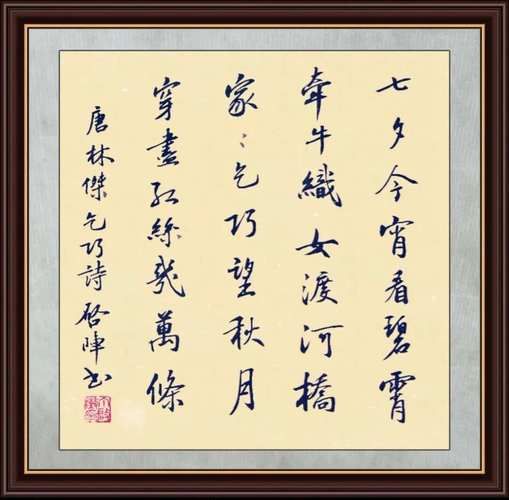 七夕今宵看碧霄
牽牛織女渡河橋
家〻乞巧望秋月
穿盡紅絲幾萬條
唐林傑乞巧詩 啓陣书